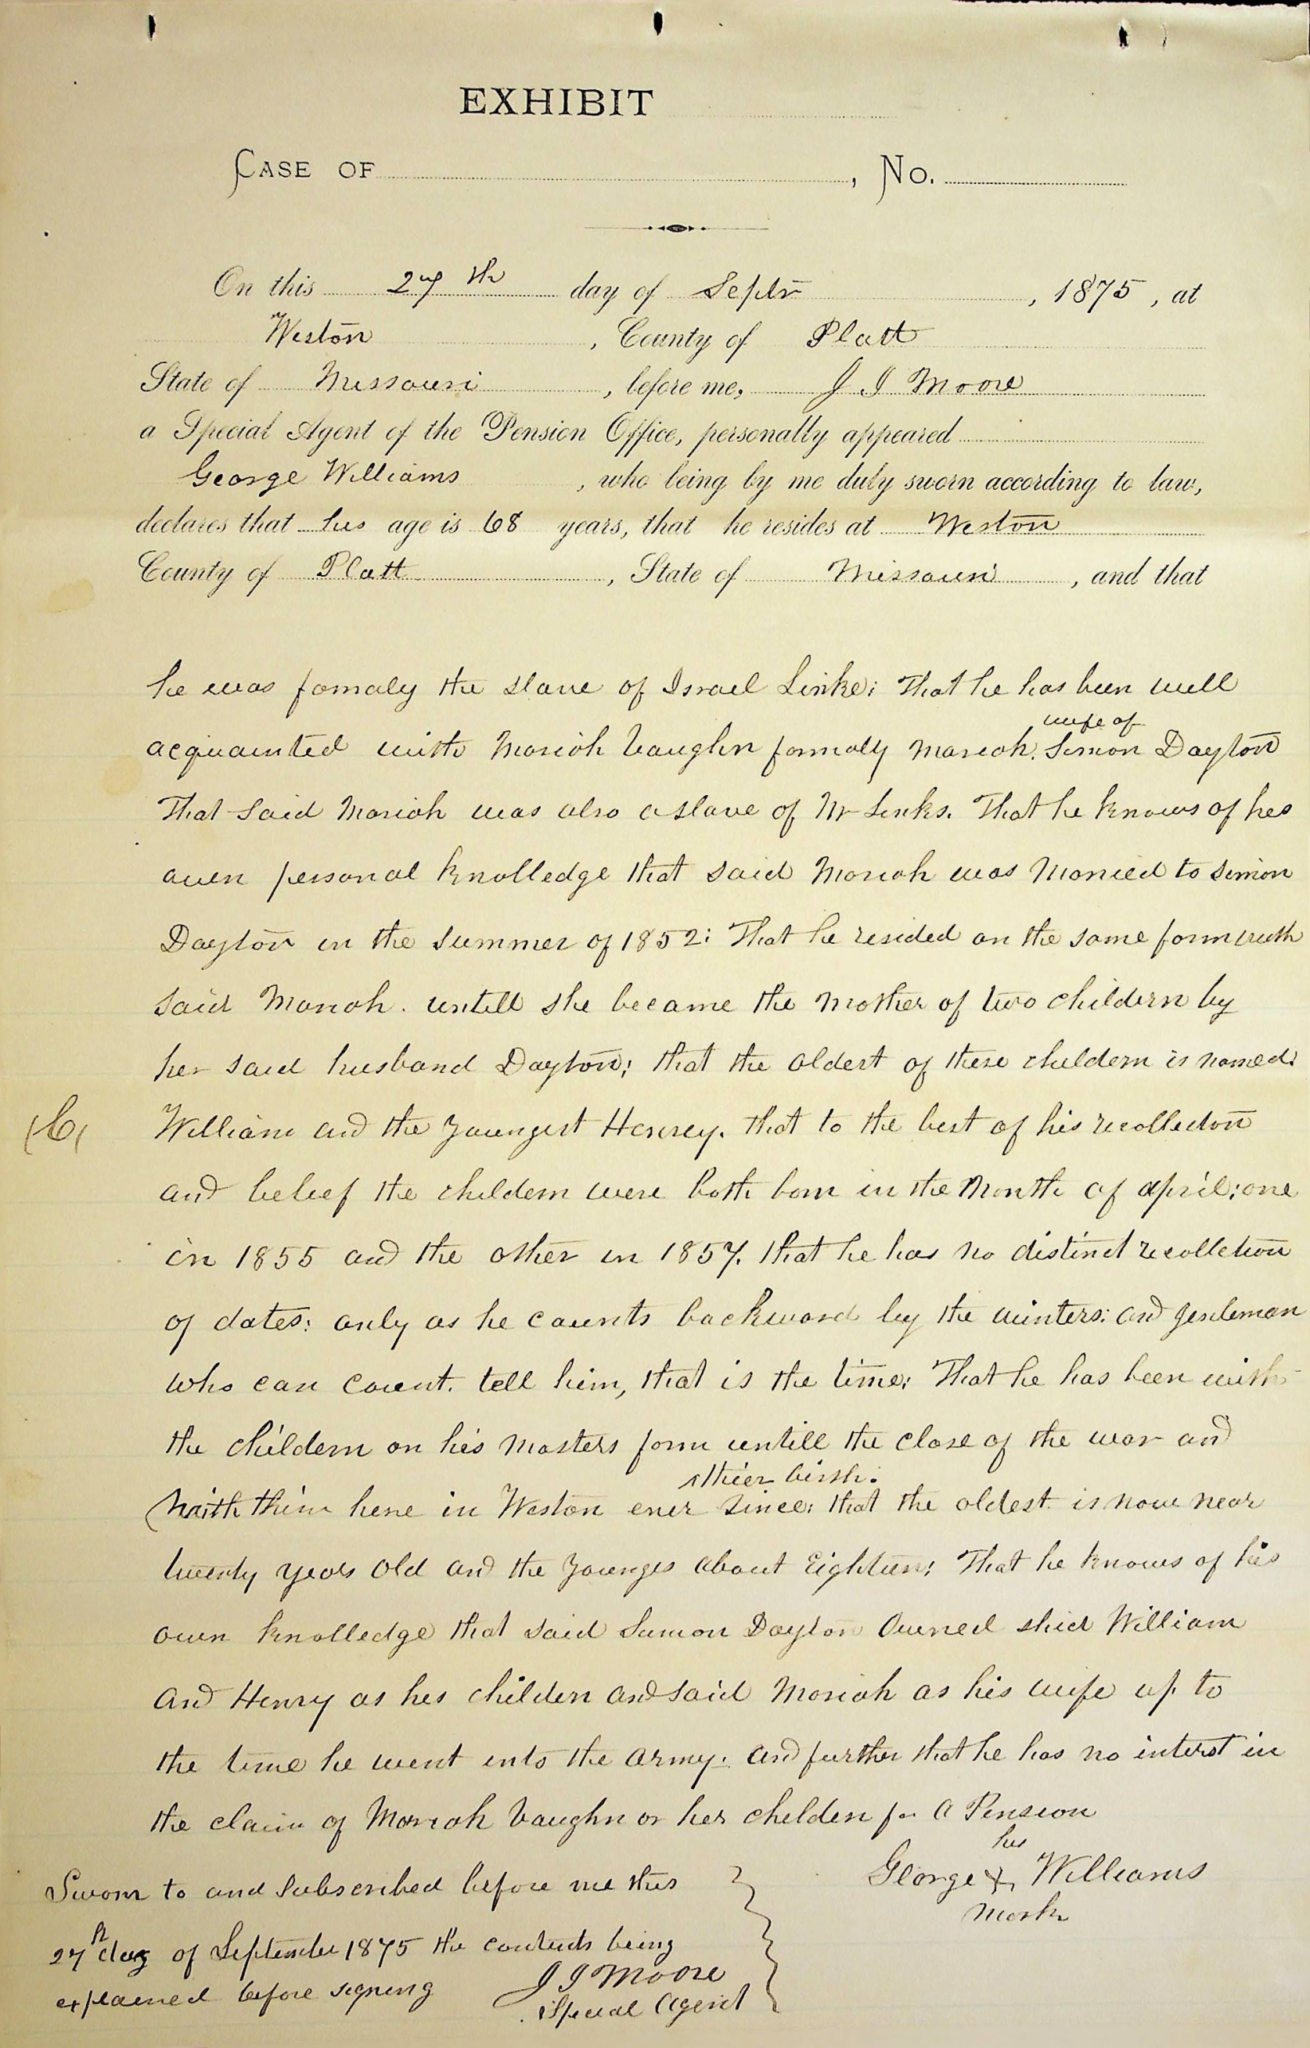 EXHIBIT
CASE OF , No.
On this 27th day of Septr , 1875, at
Weston , County of Platt
State of Missouri , before me, J J Moore
a Special Agent of the Pension Office, personally appeared
George Williams , who being by me duly sworn according to law,
declares that his age is 68 years, that he resides at Weston
County of Platt , State of Missouri , and that
he was formaly the slave of Israel Links; That he has been well
wife of
acquainted with Moriah Vaughn formaly Moriah Simon Dayton
That said Moriah was also a slave of Mr Links. That he knows of his
own personal knolledge that said Moriah was Married to Simon
Dayton in the summer of 1852: That he resided on the same farm with
said Moriah. untill she became the Mother of two childern by
her said husband Dayton; that the oldest of these childern is named
(C) William and the youngest Henrey. that to the best of his recollecton
and beleef the childern were both born in the Month of april; one
in 1855 and the other in 1857. that he has no distinct recollction
of dates: only as he counts backward by the winters: and gentleman
who can count. tell him, that is the time; That he has been with
the childern on his Masters farm untill the close of the war and
thier birth.
with thim here in Weston ever since: that the oldest is now near
twenty years old and the younges about Eighteen; That he knows of his
own knolledge that said Simon Dayton Owned William
and Henry as his childen and said Moriah as his wife up to
the time he went into the army. and further that he has no interst in
the claim of Moriah Vaughn or her childen for a Pension
his
George X Williams
Mark
Sworn to and Subscribed before me this
27th day of September 1875 the contents being
explained before signing J J Moore
Special Agent